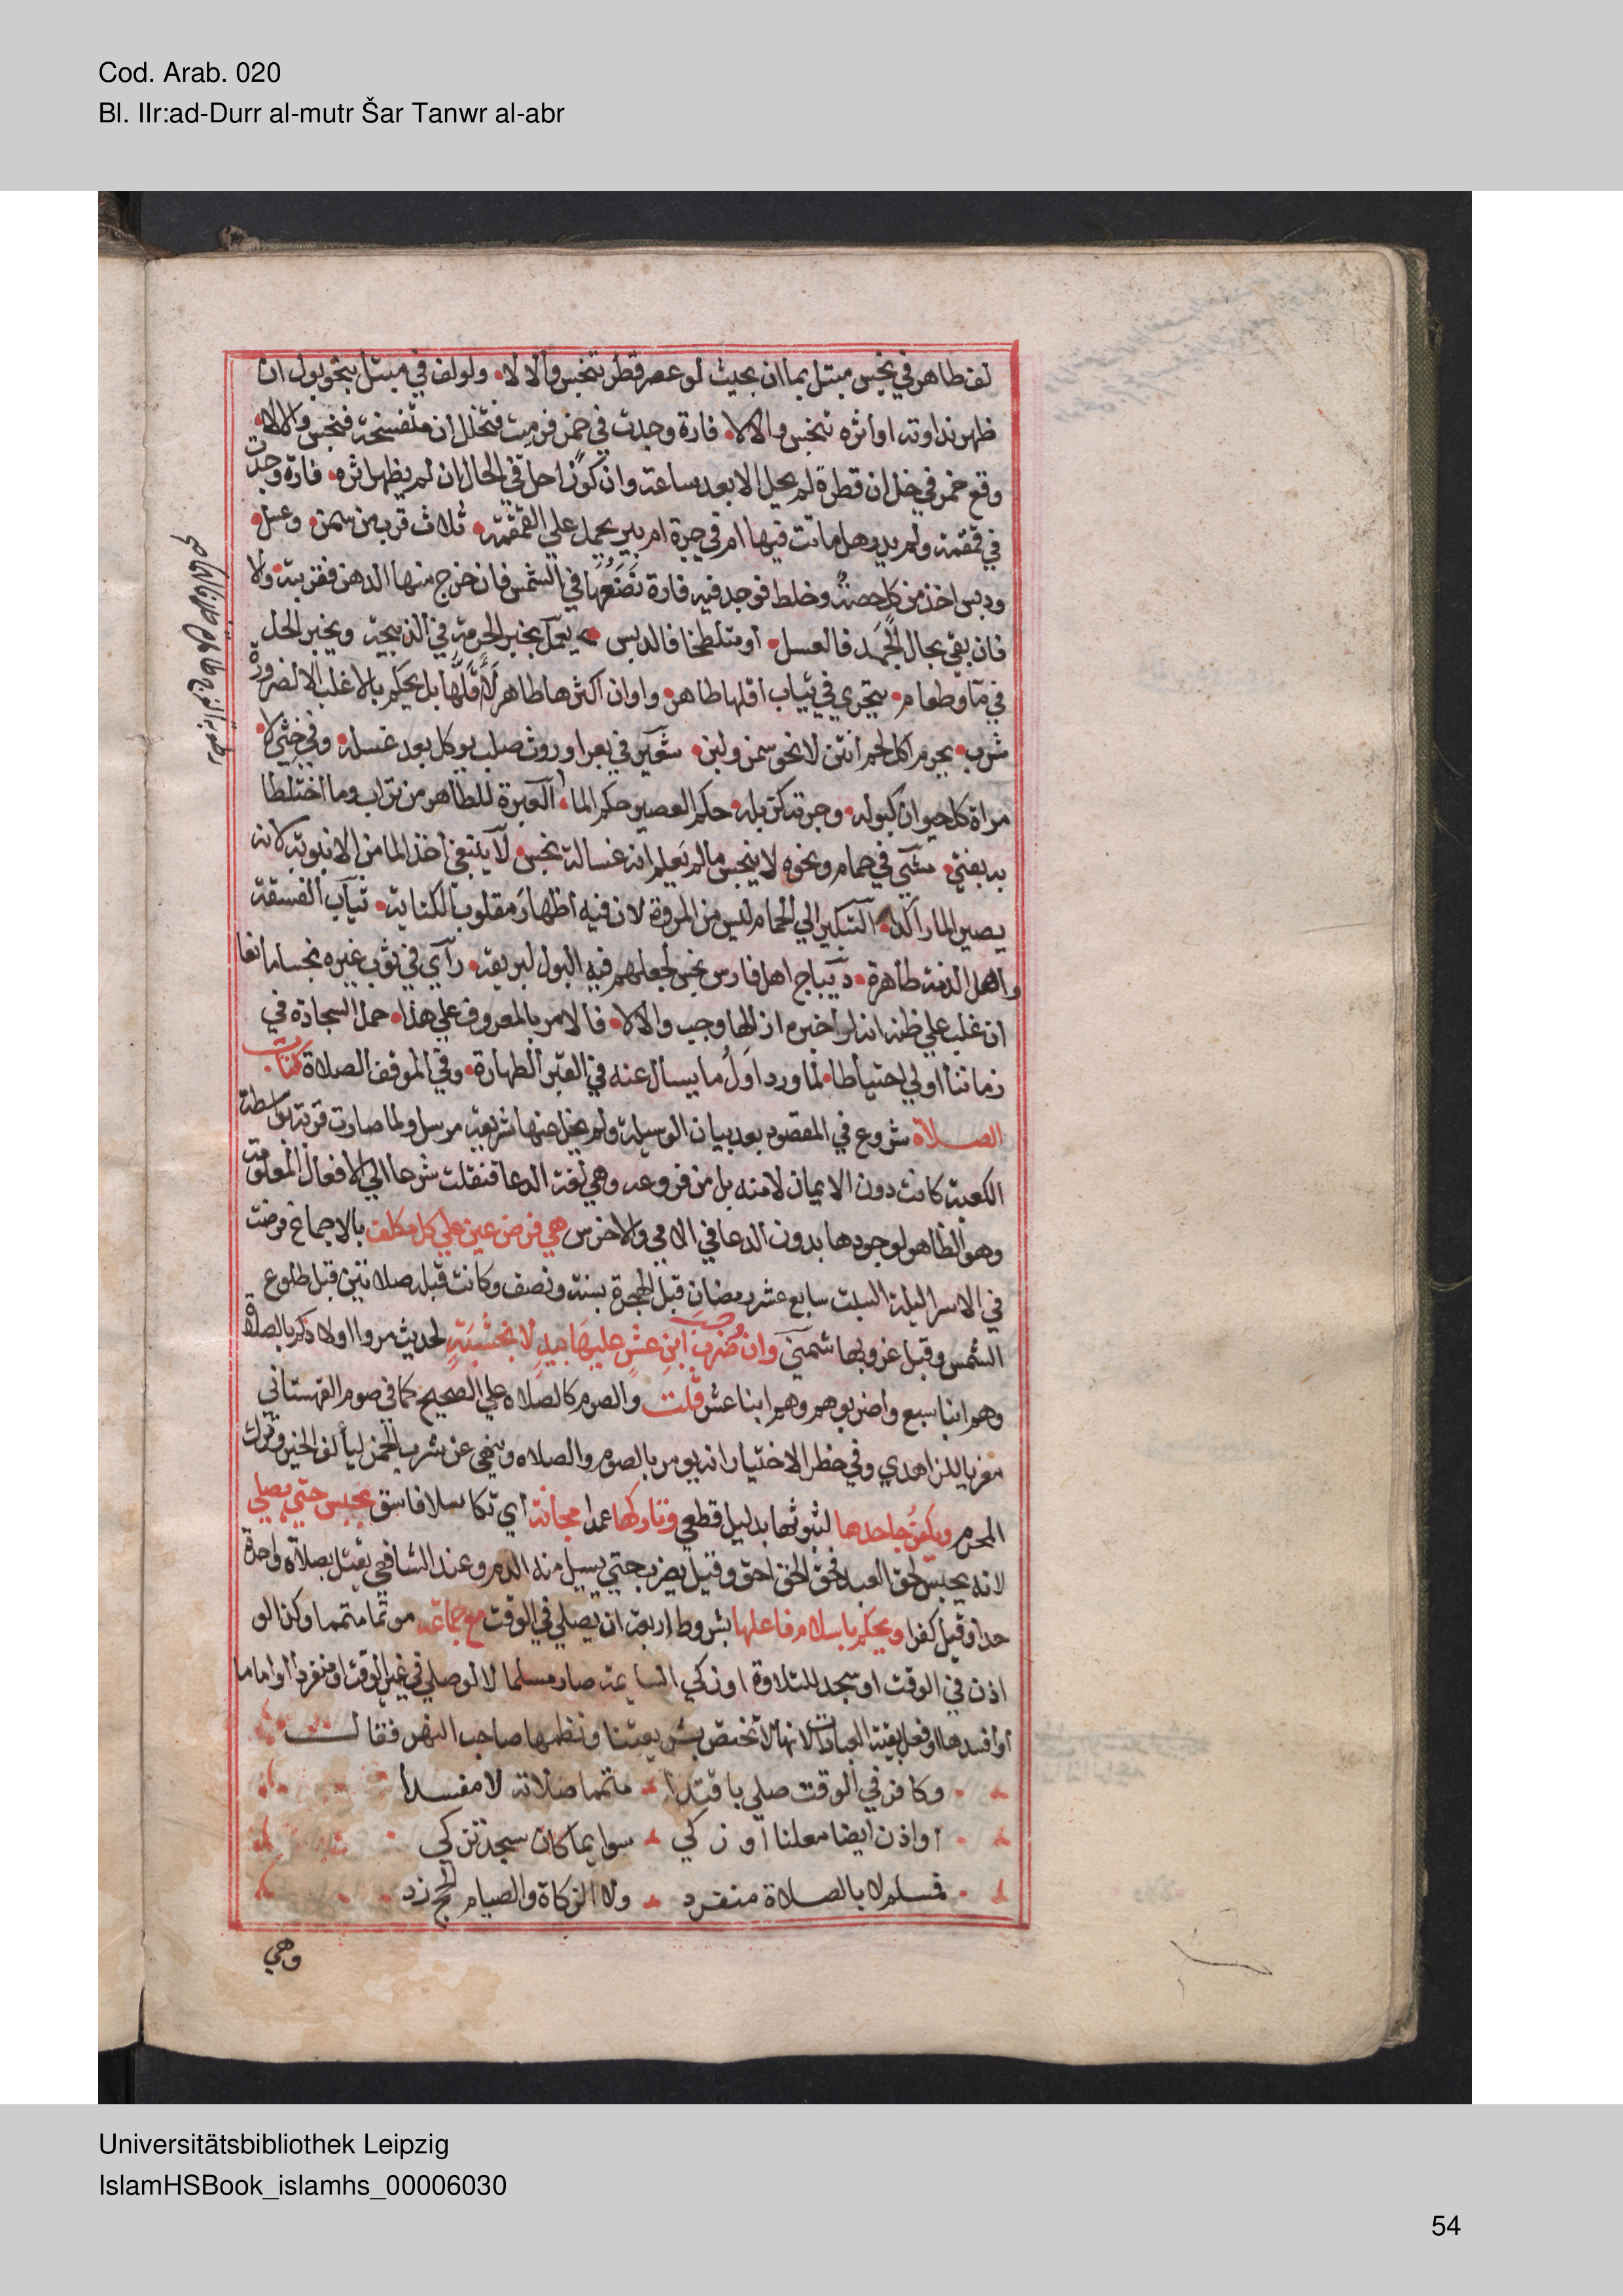 Cod. Arab. 020
Bl. IIr:ad-Durr al-mutr Šar Tanwr al-abr
لف طاهر في نجس مبتل بما ان بحيث لو عصر قطر تنجس والا لا ولو لف في مبتل بنحو بول ان
ظهر نداوته او اثره تنجس والا لا فارة وجدت في خمر فرميت فتخلل ان متفسخة فنجس والا لا
وقع خمر في خل ان قطرة لم يحل الا بعد ساعة وان كوزا حل في الحال ان لم يظهر اثره فارة وجدت
في قمقمة ولم يدر هل ماتت فيها ام في جرة ام بير يحمل علي القمقمة ثلاث قرب من سمن وعسل
ودبس اخذ من كل حصة وخلط فوجد فيه فارة نضعها في الشمس فان خرج منها الدهن فقربته والا
فان بقي بحال الجمد فالعسل او متلطخا فالدبس يعمل بخبر الحرمة في الذبيحة وبخبر الحل
في ما وطعام يتحري في ثياب اقلها طاهر واوان اكثرها طاهر لا اقلها بل يحكم بالاغلب الا لضرورة
شرب يحرم اكل لحم انتن لا نحو سمن ولبن شعير في بعر او روث صلب يوكل بعد غسله وفي خثي لا
مراة كل حيوان كبوله وجرته كزبله حكم العصير حكم الما العبرة للطاهر من تراب وما اختلطا
به يفتي مشي في حمام ونحوه لا ينجس مالم يعلم انه غسالة نجس لا ينبغي اخذ الما من الانبوبة لانه
يصير الما راكدا التبكير الي الحمام ليس من المروة لان فيه اظهار مقلوب الكناية ثياب الفسقة
واهل الذمة طاهرة ديباج اهل فارس نجس لجعلهم فيه البول لبريقه راي في ثوب غيره نجسا مانعا
ان غلب علي ظنه انه لو اخبره ازالها وجب والا لا فالامر بالمعروف علي هذا حمل السجادة في
زماننا اولي احتياطا لما ورد اول ما يسال عنه في القبر الطهارة وفي الموقف الصلاة كتاب
الصلاة شروع في المقصود بعد بيان الوسيلة ولم يخل عنها شريعة مرسل ولما صارت قربة بواسطة
الكعبة كانت دون الايمان لا منه بل من فروعه وهي لغة الدعا فنقلت شرعا الي الافعال المعلومة
وهو الظاهر لوجودها بدون الدعا في الامي والاخرس هي فرض عين علي كل مكلف بالاجماع فرضت
في الاسرا ليلة السبت سابع عشر رمضان قبل الهجرة بسنة ونصف وكانت قبله صلاتين قبل طلوع
الشمس وقبل غروبها شمني وان وجب ضرب ابن عشر عليها بيد لا بخشبة لحديث مروا اولادكم بالصلاة
وهم ابنا سبع واضربوهم وهم ابنا عشر قلت والصوم كالصلاه علي الصحيح كما في صوم القهستاني
معزيا للزاهدي وفي حظر الاختيار انه يومر بالصوم والصلاه وينهي عن شرب الخمر ليألف الخير ويترك
المحرم ويكفر جاحدها لثبوتها بدليل قطعي وتاركها عمدا مجانة اي تكاسلا فاسق يحبس حتي يصلي
لانه يحبس لحق العبد فحق الحق احق وقيل يضرب حتي يسيل منه الدم وعند الشافعي يقتل بصلاة واحدة
حدا وقيل كفرا ويحكم باسلام فاعلها بشروط اربعة ان يصلي في الوقت مع جماعة موتما متمما وكذا لو
اذن في الوقت او سجد للتلاوة او زكي السائمة صار مسلما لا لو صلي في غير الوقت او منفردا او اماما
او افسدها او فعل بقية العبادات لانها لا تختص بشريعتنا ونظمها صاحب النهر فقال
وكافر في الوقت صلي باقتدا متمما صلاته لا مفسدا
او اذن ايضا معلنا او زكي سوايما كان سجد تزكي
فمسلم لا بالصلاة منفرد ولا الزكاة والصيام الحج زد
وهي
Universitätsbibliothek Leipzig
IslamHSBook_islamhs_00006030
54